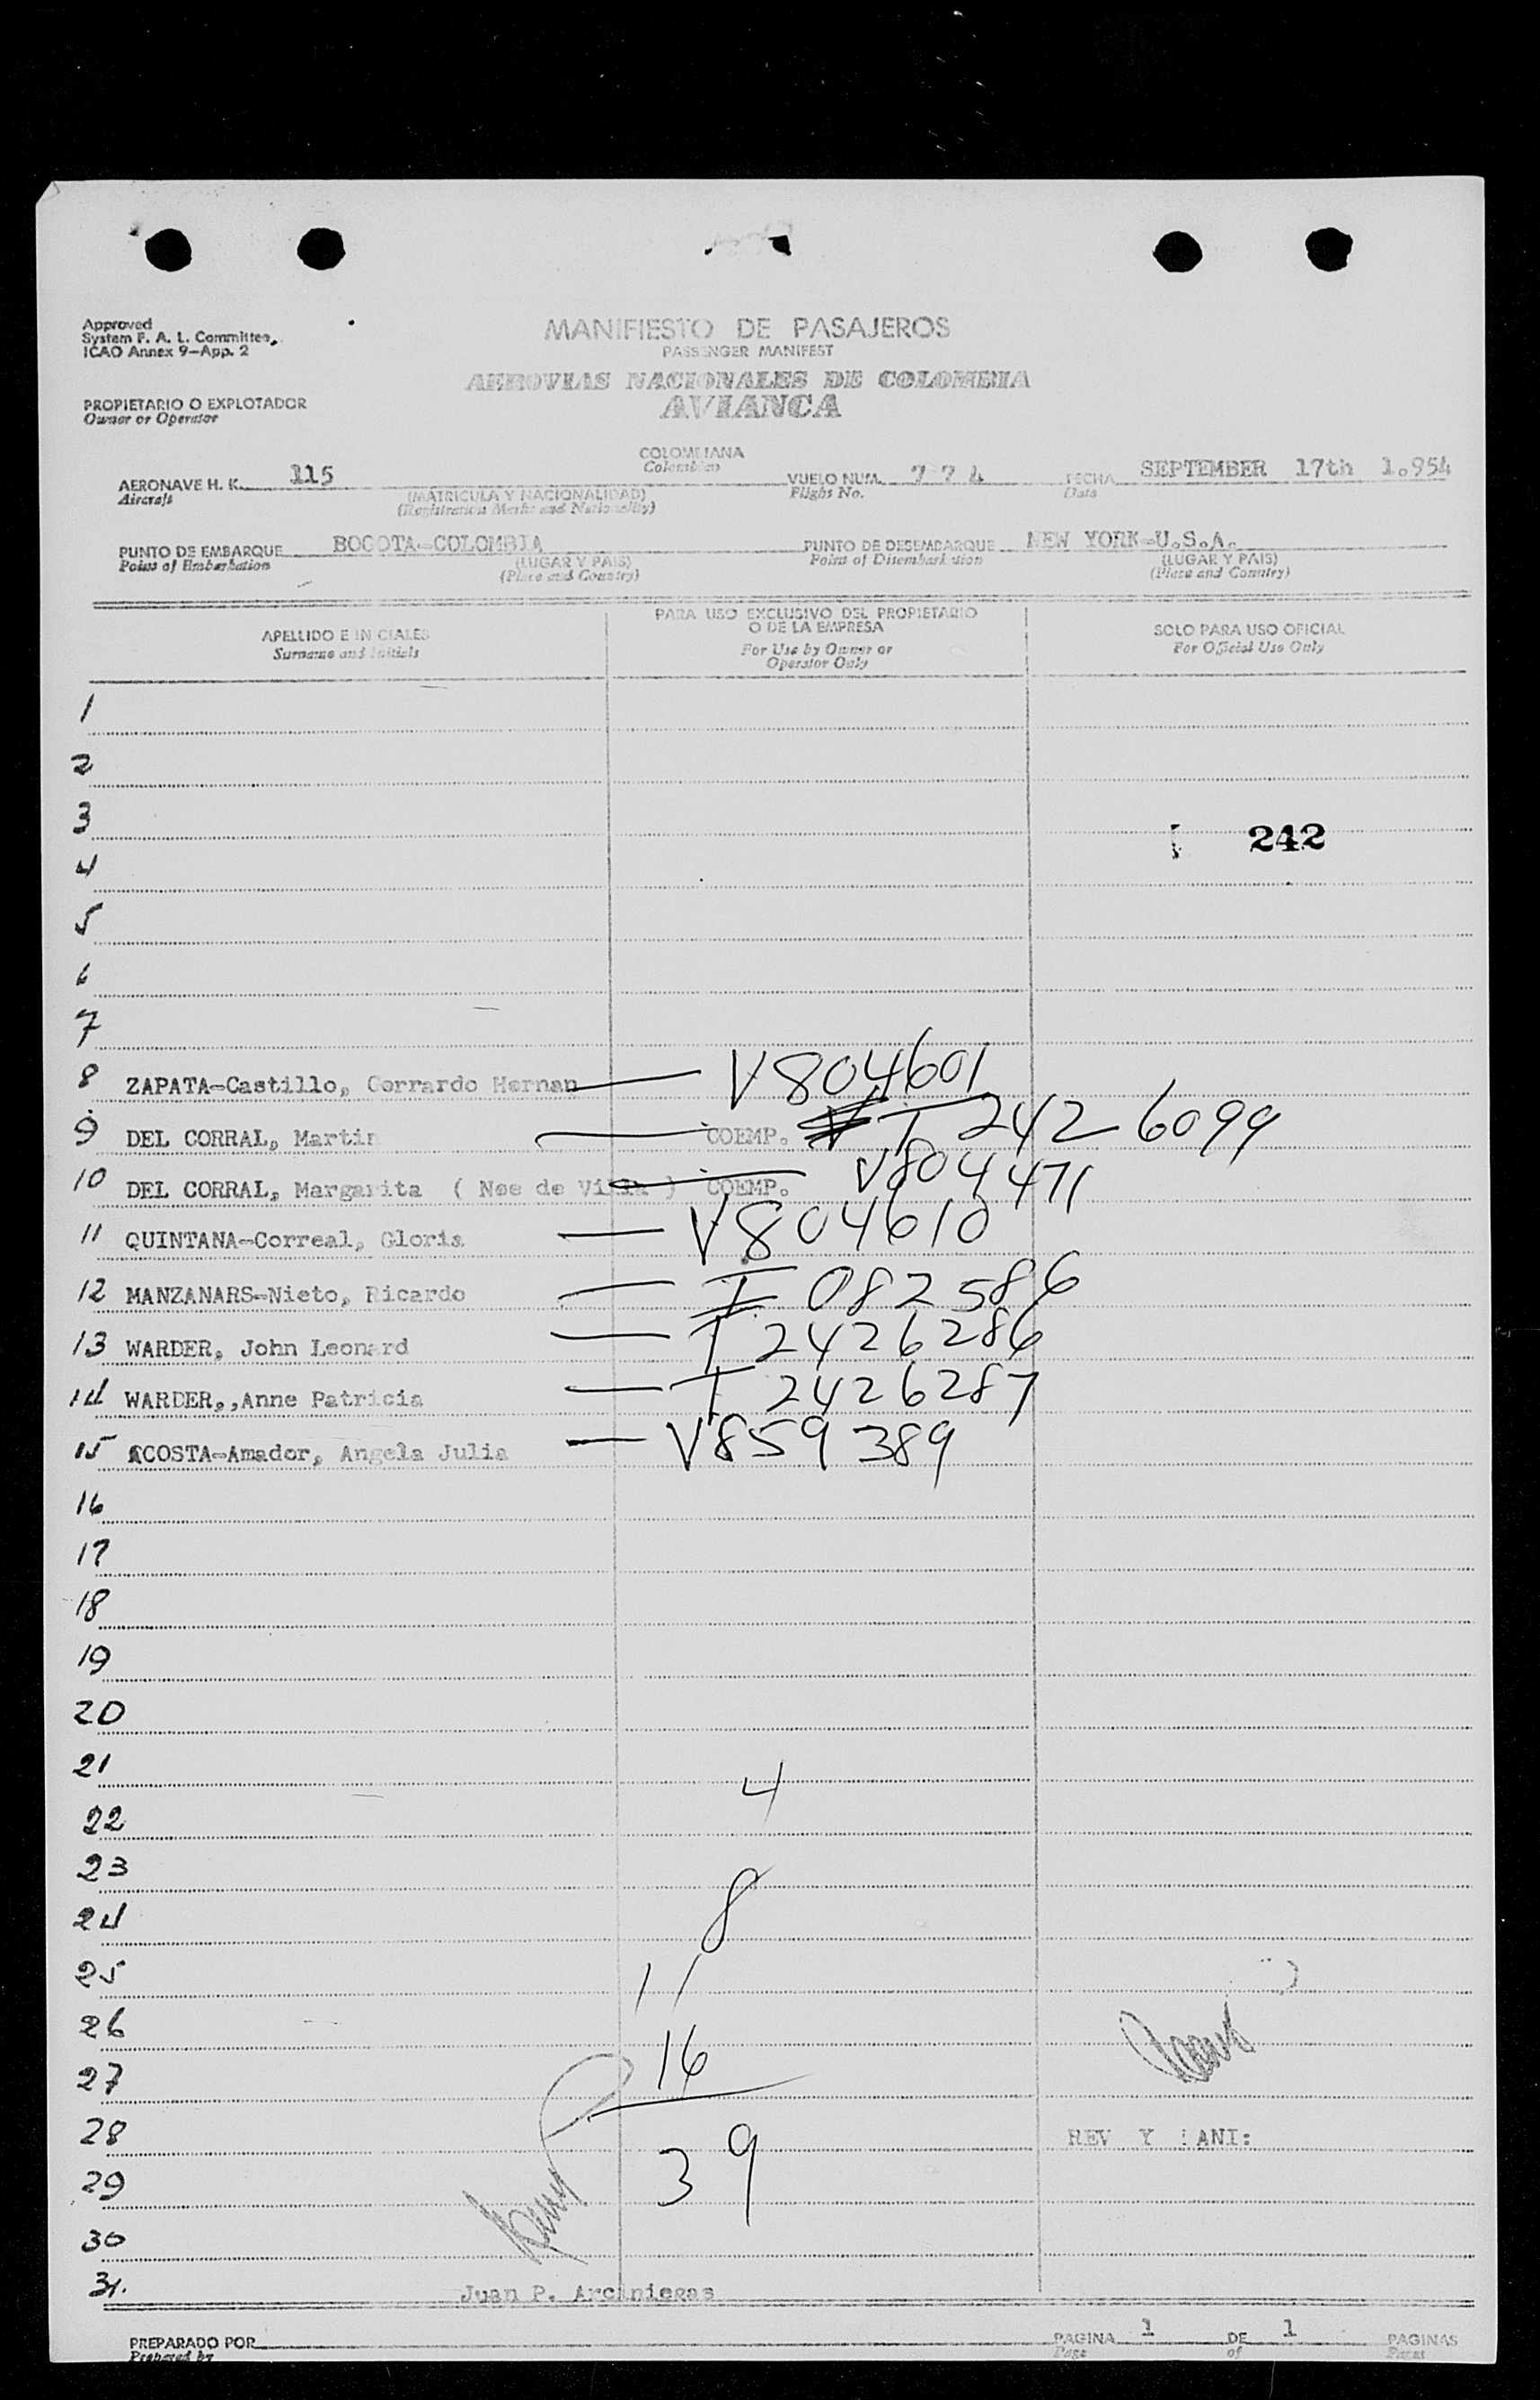 Approved
System F. A. L. Committee,
ICAO Annex 9-App. 2
MANIFIESTO DE PASAJEROS
PASSENGER MANIFEST
AEROVIAS NACIONALES DE COLOMBIA
AVIANCA
PROPIETARIO O EXPLOTADOR
Owner or Operator
COLOMBIANA
Colombian
AERONAVE H. K. 115
Aircraft
(MATRICULA Y NACIONALIDAD)
(Registration Marks and Nationality)
VUELO NUM. 774
Flight No.
FECHA SEPTEMBER 17th 1.954
Date
PUNTO DE EMBARQUE BOGOTA-COLOMBIA
Point of Embarkation
(LUGAR Y PAIS)
(Place and Country)
PUNTO DE DESEMBARQUE NEW YORK-U.S.A.
Point of Disembarkation
(LUGAR Y PAIS)
(Place and Country)
APELLIDO E INICIALES
Surname and Initials
PARA USO EXCLUSIVO DEL PROPIETARIO
O DE LA EMPRESA
For Use by Owner or
Operator Only
SOLO PARA USO OFICIAL
For Official Use Only
1
2
3
242
4
5
6
7
8 ZAPATA-Castillo, Gerrardo Hernan — V804601
9 DEL CORRAL, Martin — COEMP. T 242 6099
10 DEL CORRAL, Margarita ( Nee de Villa ) COEMP. V804471
11 QUINTANA-Correal, Gloria — V804610
12 MANZANARS-Nieto, Ricardo — I 082586
13 WARDER, John Leonard — T 2426286
14 WARDER,,Anne Patricia — T 2426287
15 ACOSTA-Amador, Angela Julia — V859389
16
17
18
19
20
21
4
22
23
8
24
25
11
26
16
27
28
REV Y ANI:
39
29
30
31.
Juan P. Arciniegas
PREPARADO POR
Prepared by
PAGINA 1 DE 1 PAGINAS
Page of Pages